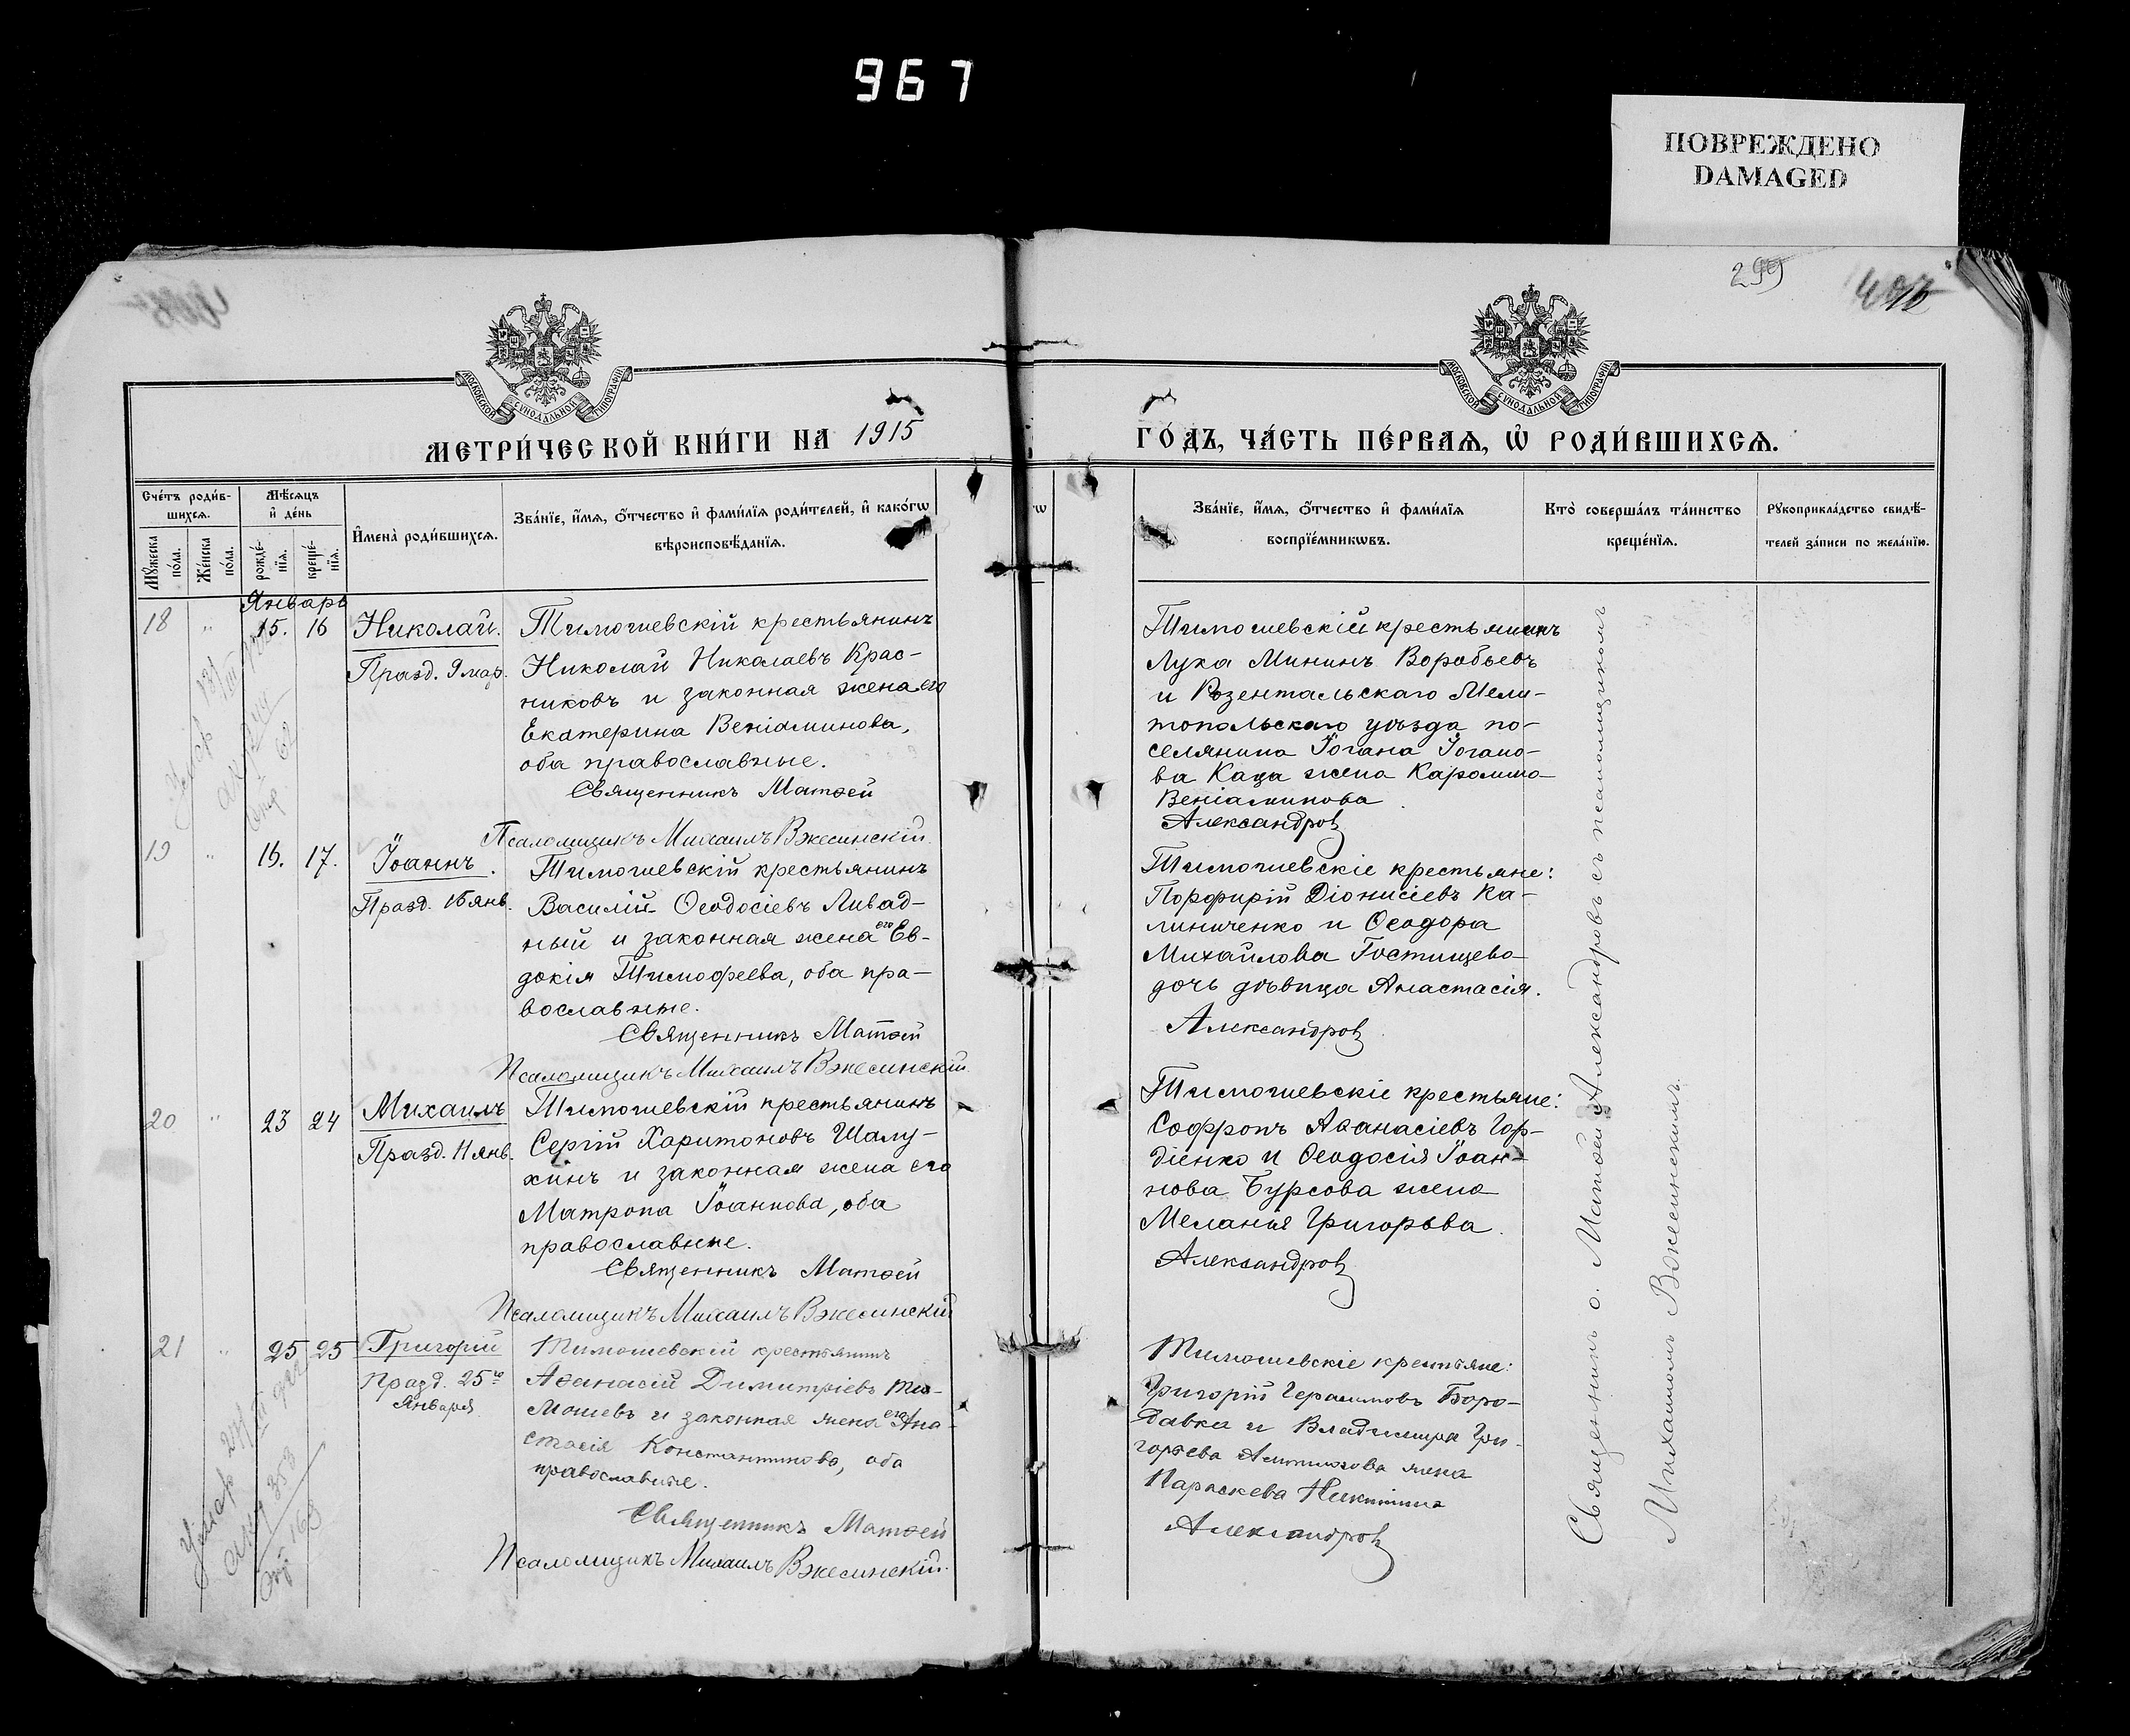 967
ПОВРЕЖДЕНО
DAMAGED
299
МОСКОВСКОЙ СУНОДАЛЬНОЙ ТИПОГРАФІИ
МОСКОВСКОЙ СУНОДАЛЬНОЙ ТИПОГРАФІИ
МЕТРИ́ЧЕСКОЙ КНИ́ГИ НА 1915
ГО́ДЪ, ЧА́СТЬ ПЕ́РВАѦ, Ѡ҆ РОДИ́ВШИХСѦ.
Сче́тъ роди́в-
шихсѧ.
Мꙋ́жеска
по́ла.
Же́нска
по́ла.
Мѣ́сѧцъ
и҆ де́нь
рожде́-
нїѧ.
креще́-
нїѧ.
И҆мена̀ роди́вшихсѧ.
Зва́нїе, и҆́мѧ, ѻ҆́тчество и҆ фами́лїѧ роди́телей, и҆ како́гѡ
вѣроисповѣ́данїѧ.
гѡ
Зва́нїе, и҆́мѧ, ѻ҆́тчество и҆ фами́лїѧ
воспрїе́мникѡвъ.
Кто̀ соверша́лъ та́инство
креще́нїѧ.
Рꙋкоприкла́дство свидѣ́-
телей за́писи по жела́нїю.
Январь
18 " 15. 16 Николай.
Празд. 9 мар.
Тимошевскій крестьянинъ
Николай Николаевъ Крас-
никовъ и законная жена его
Екатерина Веніаминова,
оба православные.
Священникъ Матѳей
Псаломщикъ Михаилъ Вжесинскій.
Тимошевскій крестьянинъ
Лука Мининъ Воробьевъ
и Розентальскаго Мели-
топольскаго уѣзда по-
селянина Іогана Іогано-
ва Каца жена Каролина
Веніаминова
Александров
19 " 16. 17. Іоаннъ.
Празд. 15 янв.
Тимошевскій крестьянинъ
Василій Ѳеодосіевъ Ливад-
ный и законная жена его Ев-
докія Тимофеева, оба пра-
вославные.
Священникъ Матѳей
Псаломщикъ Михаилъ Вжесинскій.
Тимошевскіе крестьяне:
Порфирій Діонисіевъ Ка-
линиченко и Ѳеодора
Михайлова Гостищева
дочь дѣвица Анастасія.
Александров
20 " 23 24 Михаилъ
Празд. 11 янв.
Тимошевскій крестьянинъ
Сергій Харитоновъ Шалу-
хинъ и законная жена его
Матрона Іоаннова, оба
православные.
Священникъ Матѳей
Псаломщикъ Михаилъ Вжесинскій
Тимошевскіе крестьяне:
Софронъ Аѳанасіевъ Гор-
діенко и Ѳеодосія Іоан-
нова Бурсова жена
Меланія Григорьва.
Александров
21 " 25 25 Григорій
Празд. 25го
Января
Тимошевскій крестьянинъ
Аѳанасій Димитріевъ Ти-
мошевъ и законная жена его Ана-
стасія Константинова, оба
православные.
Священникъ Матѳей
Псаломщикъ Михаилъ Вжесинскій.
Тимошевскіе крестьяне:
Григорій Герасимовъ Боро-
давка и Владимира Гри-
горьева жена
Параскева Никитина
Александров
Священникъ о. Матѳей Александровъ съ псаломщикомъ
Михаиломъ Вжесинскимъ.